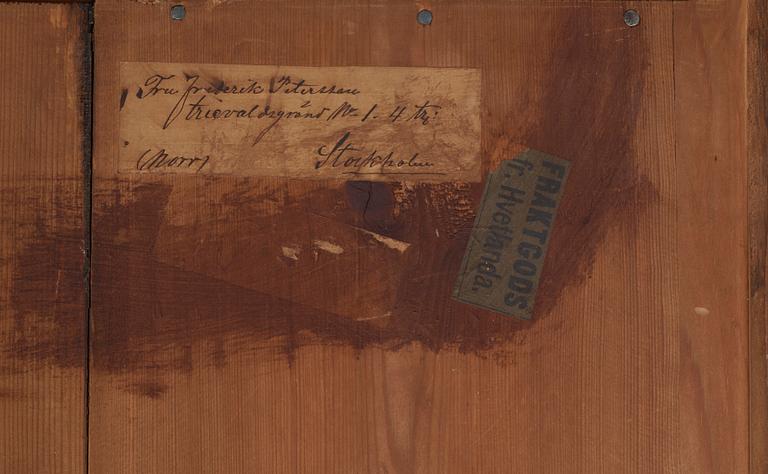 Fru Frederik Peterssen
trievaldsgränd No 1 - 4 tr:
(Norr) Stockholm
FRAKTGODS
fr. Hvetlanda.